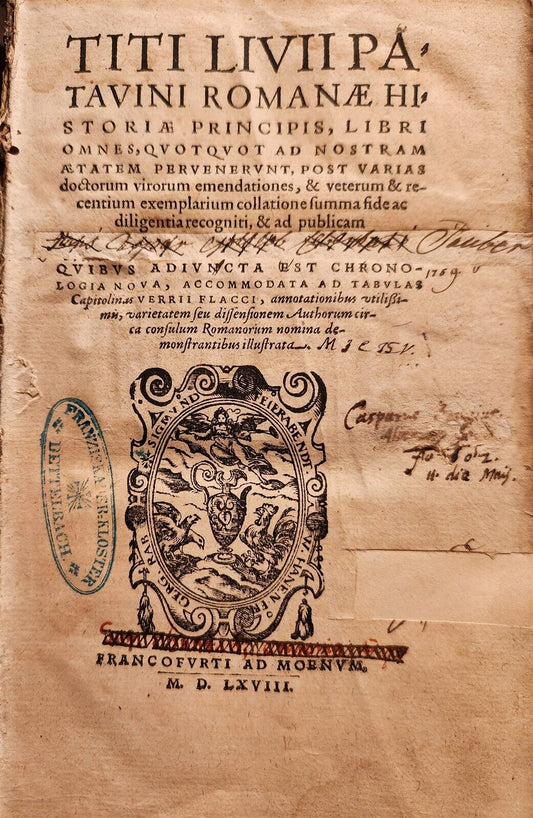 TITI LIVII PA-
TAVINI ROMANÆ HI-
STORIÆ PRINCIPIS, LIBRI
OMNES, QVOTQVOT AD NOSTRAM
ÆTATEM PERVENERVNT, POST VARIAS
doctorum virorum emendationes, & veterum & re-
centium exemplarium collatione summa fide ac
diligentia recogniti, & ad publicam
Tauber
1769
QVIBVS ADIVNCTA EST CHRONO-
LOGIA NOVA, ACCOMMODATA AD TABVLAS
Capitolinas VERRII FLACCI, annotationibus vtilißi-
mis, varietatem seu dissensionem Authorum cir-
ca consulum Romanorum nomina de-
monstrantibus illustrata.
Casparus
die Maij.
SIGMVND FEIERABENDT
GEORG RAB V. HANEN ER:
FRANZISKANER-KLOSTER
DETTELBACH
FRANCOFVRTI AD MOENVM.
M. D. LXVIII.